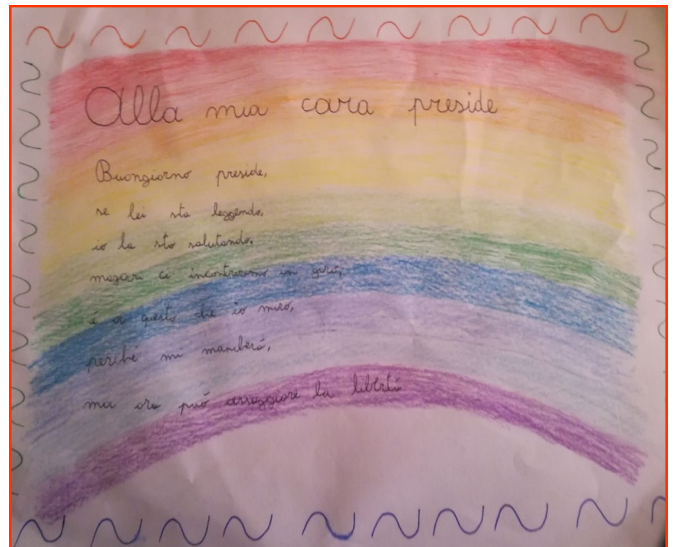 Alla mia cara preside
Buongiorno preside,
se lei sta leggendo,
io la sto salutando,
magari ci incontreremo in giro,
è a questo che io miro,
perché mi mancherá,
ma ora puó assaggiare la libertá